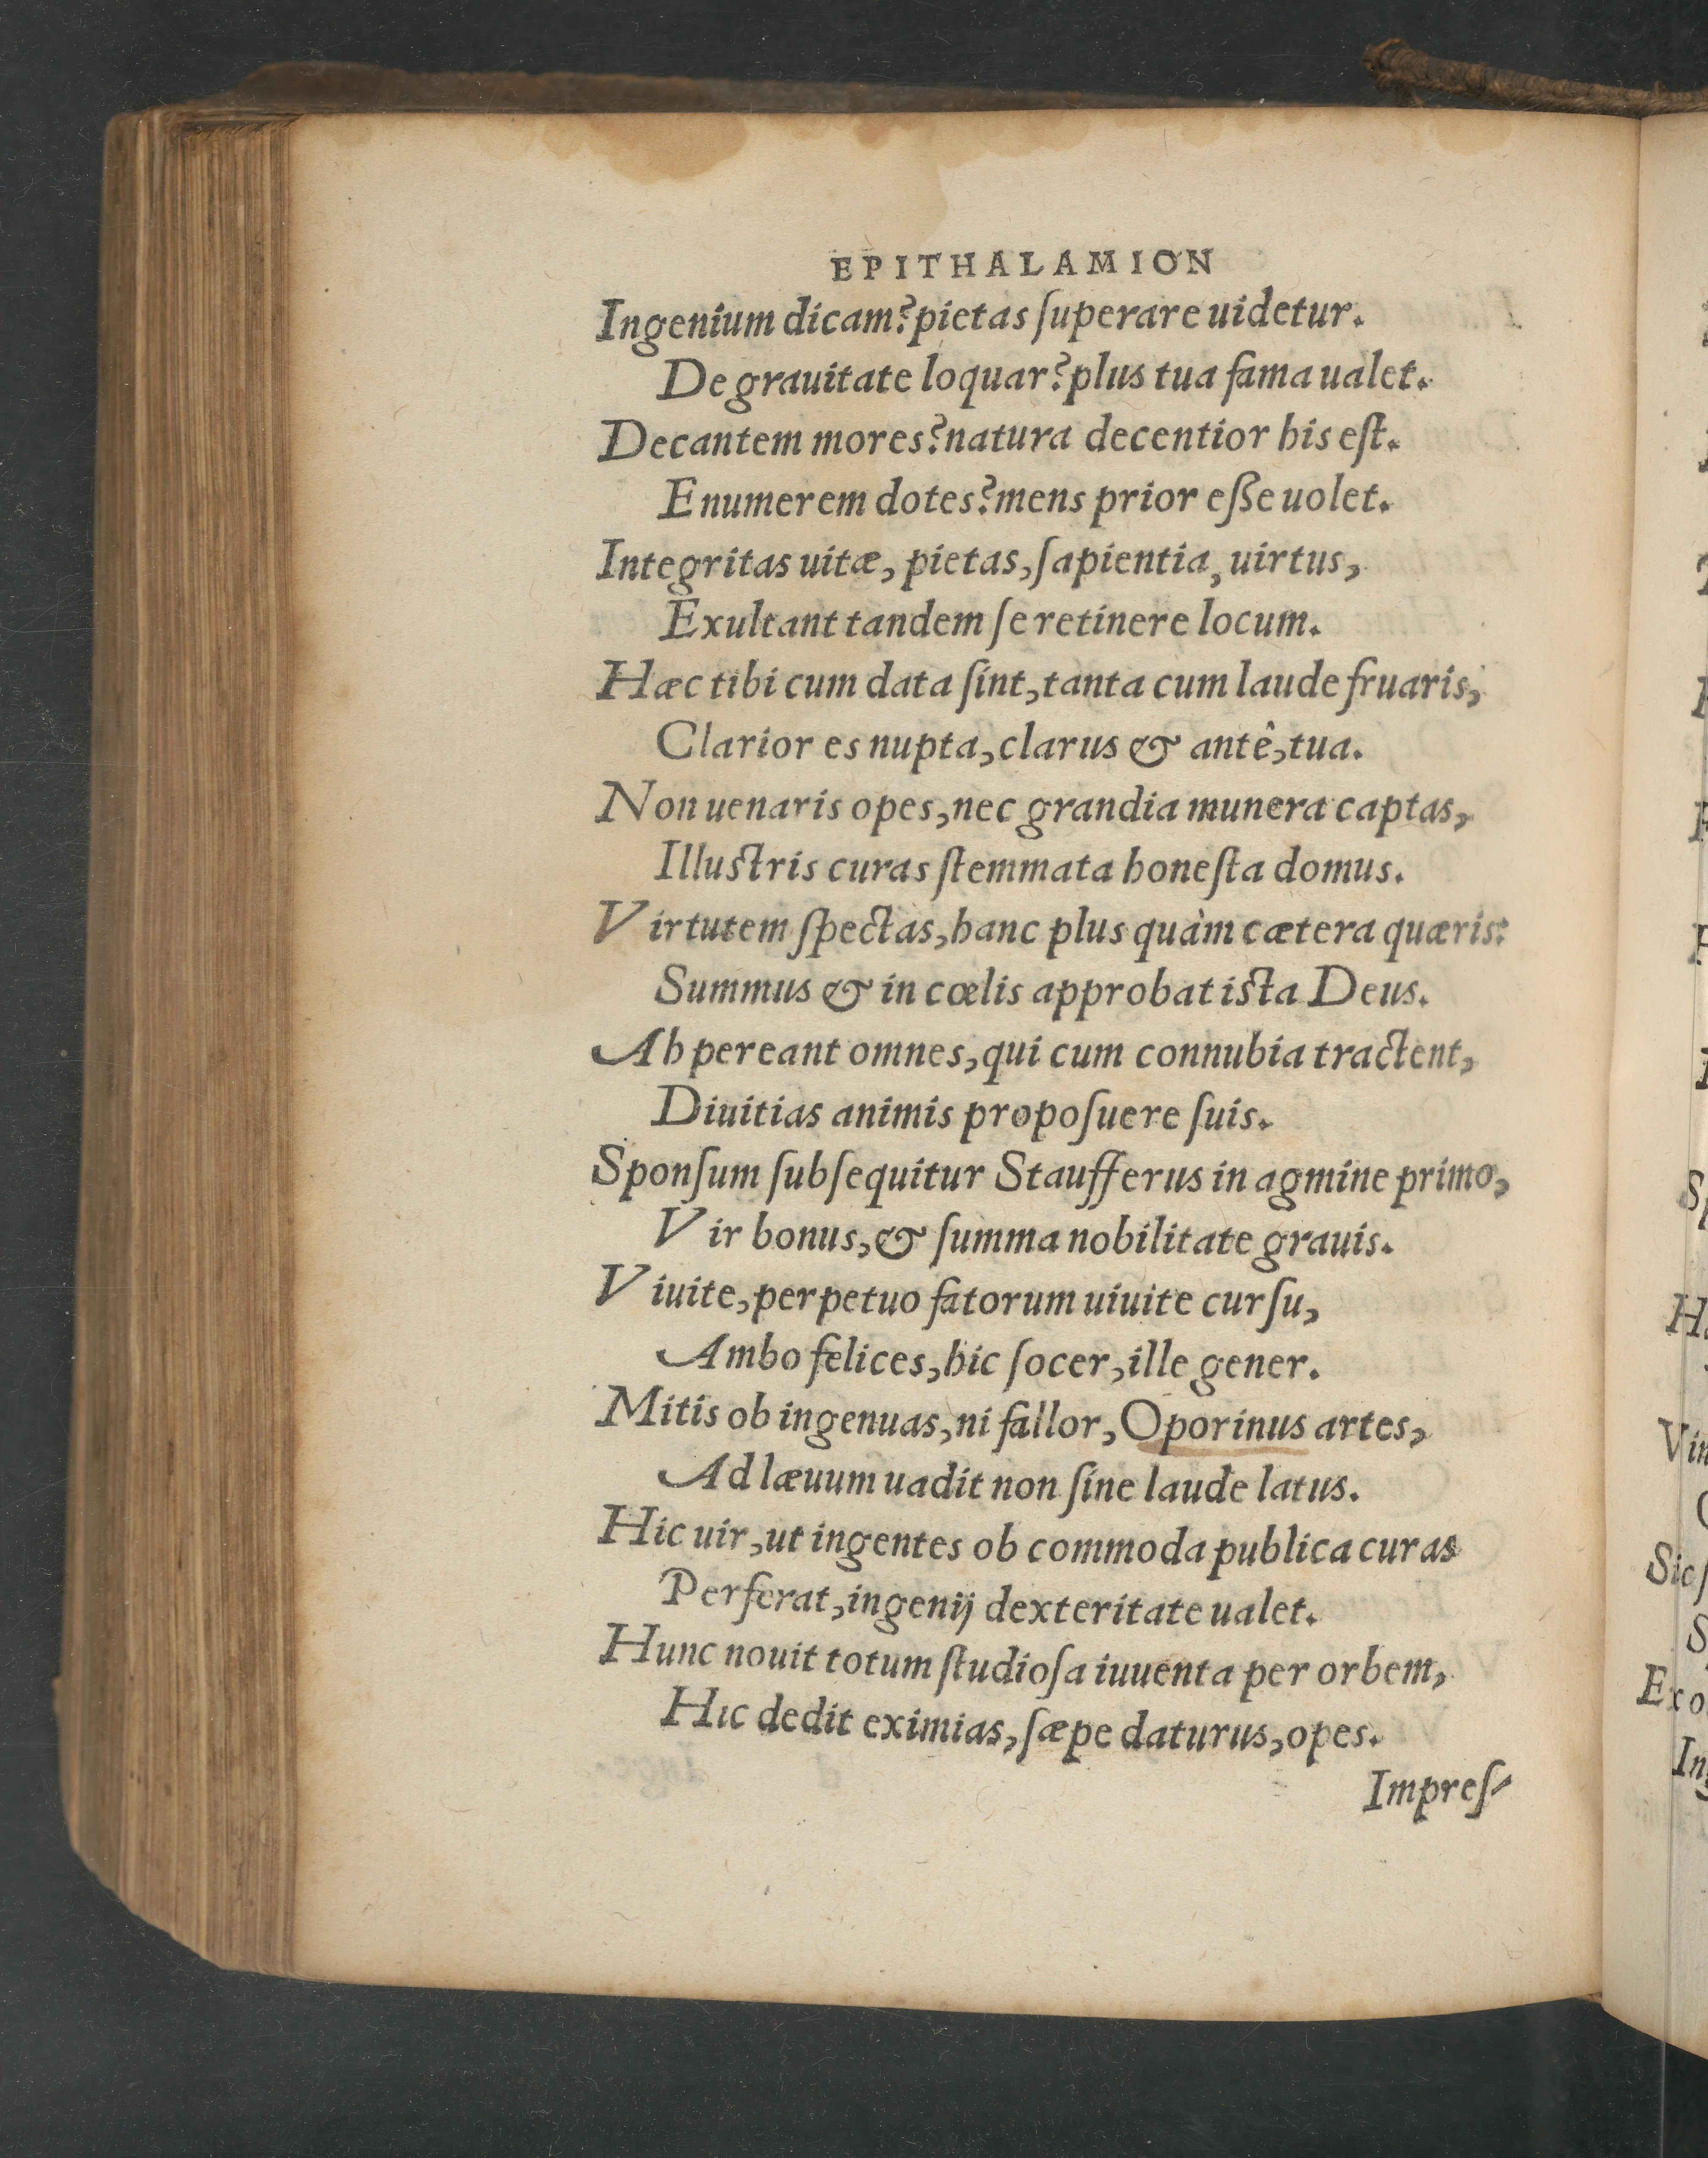 EPITHALAMION
Ingenium dicam? pietas ſuperare uidetur.
De grauitate loquar? plus tua fama ualet.
Decantem mores? natura decentior his eſt.
Enumerem dotes? mens prior eſſe uolet.
Integritas uitæ, pietas, ſapientia, uirtus,
Exultant tandem ſe retinere locum.
Hæc tibi cum data ſint, tanta cum laude fruaris,
Clarior es nupta, clarus & antê, tua.
Non uenaris opes, nec grandia munera captas,
Illuſtris curas ſtemmata honeſta domus.
Virtutem ſpectas, hanc plus quàm cætera quæris:
Summus & in cœlis approbat iſta Deus.
Ah pereant omnes, qui cum connubia tractent,
Diuitias animis propoſuere ſuis.
Sponſum ſubſequitur Staufferus in agmine primo,
Vir bonus, & ſumma nobilitate grauis.
Viuite, perpetuo fatorum uiuite curſu,
Ambo felices, hic ſocer, ille gener.
Mitis ob ingenuas, ni fallor, Oporinus artes,
Ad læuum uadit non ſine laude latus.
Hic uir, ut ingentes ob commoda publica curas
Perferat, ingenij dexteritate ualet.
Hunc nouit totum ſtudioſa iuuenta per orbem,
Hic dedit eximias, ſæpe daturus, opes.
Impreſ-